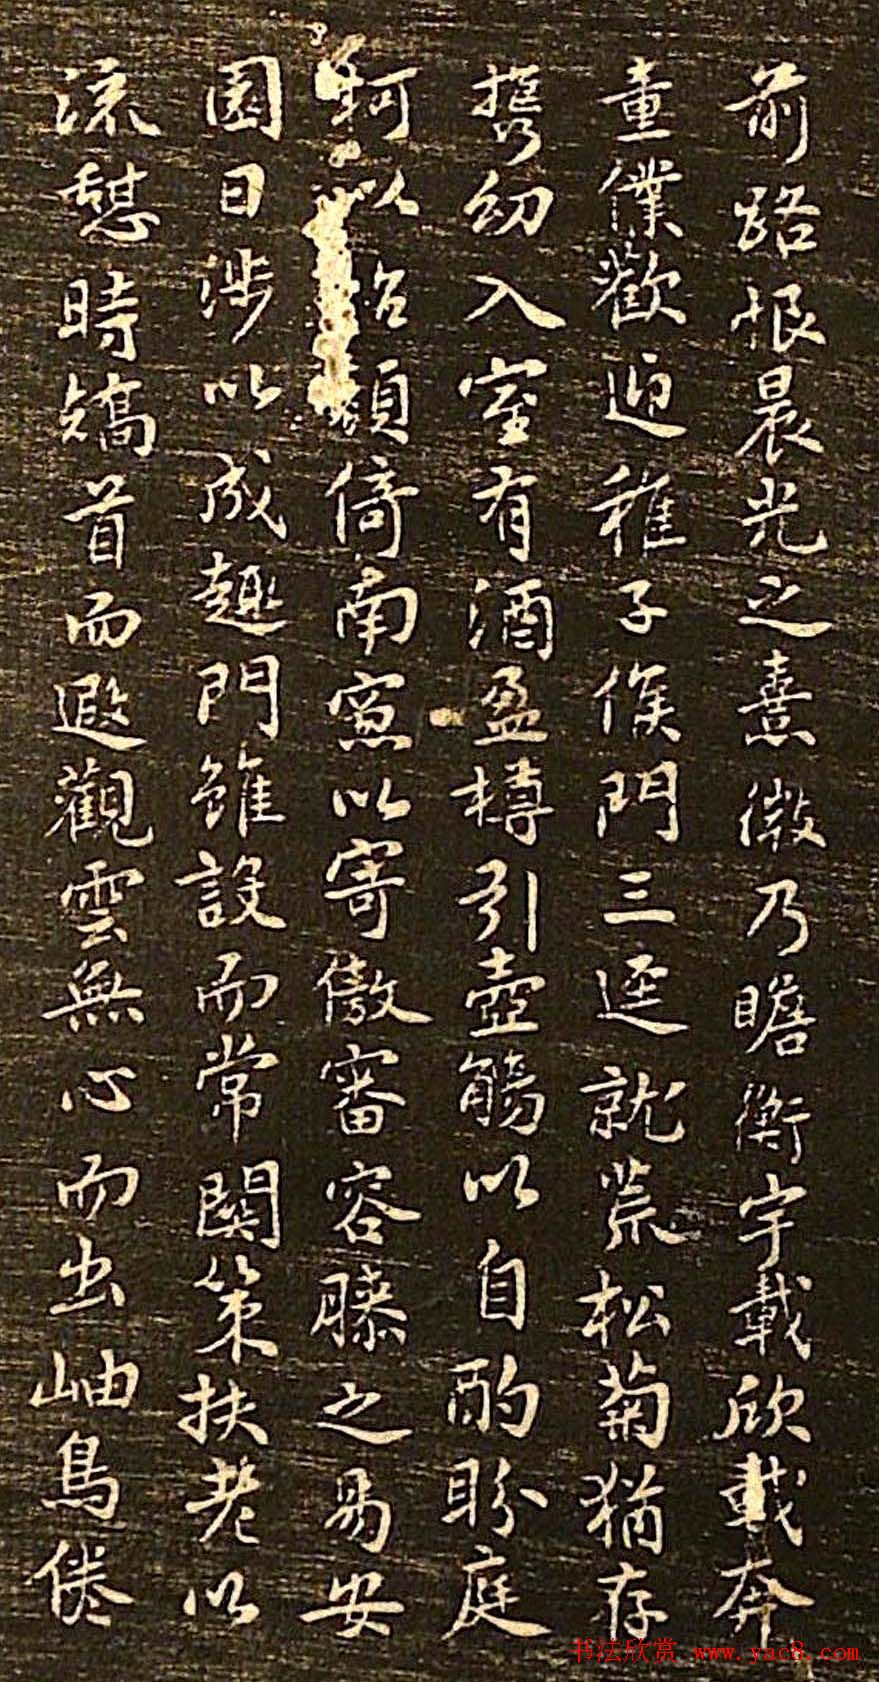 前路恨晨光之熹微乃瞻衡宇載欣載奔
童僕歡迎稚子候門三逕就荒松菊猶存
携幼入室有酒盈樽引壺觴以自酌盼庭
柯以怡顏倚南窓以寄傲審容膝之易安
園日涉以成趣門雖設而常関策扶老以
流憩時矯首而遐觀雲無心而出岫鳥倦
书法欣赏 www.yac8.com